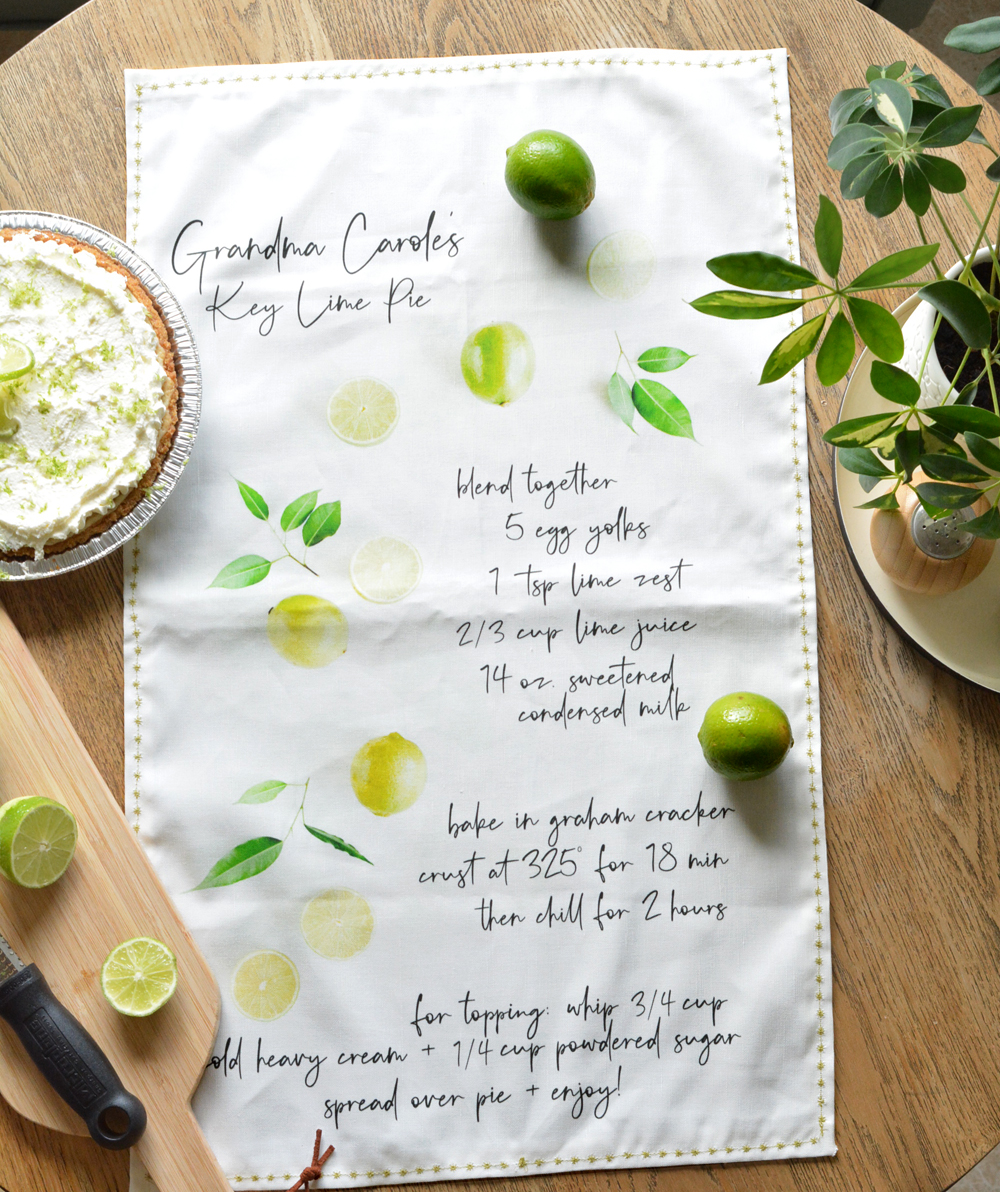 Grandma Carole's
Key Lime Pie
blend together
5 egg yolks
1 tsp lime zest
2/3 cup lime juice
14 oz. sweetened
condensed milk
bake in graham cracker
crust at 325° for 18 min
then chill for 2 hours
for topping: whip 3/4 cup
old heavy cream + 1/4 cup powdered sugar
spread over pie + enjoy!